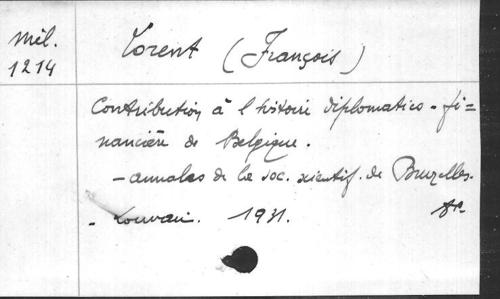 Mél.
1214
Lorent (François)
Contribution à l histoire diplomatico-fi=
nancière de Belgique.
- annales de la soc. scientif. de Bruxelles.
- Louvain. 1931.